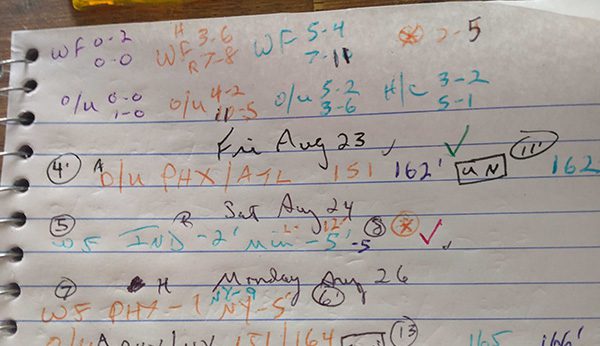 WF 0-2 H 3-6 WF 5-4 2-5
0-0 WF R 7-8 7-11
O/U 0-0 O/U 4-2 O/U 5-2 H/C 3-2
1-0 11-5 3-6 5-1
Fri Aug 23
4 A O/U PHX/ATL 151 162' UN 11' 162
B Sat Aug 24
5 WF IND -2' Min -5' -5 8
7 H Monday Aug 26
NY-9 6'
WF PHX -1 NY-5'
O/U 151/164 13 165 166'